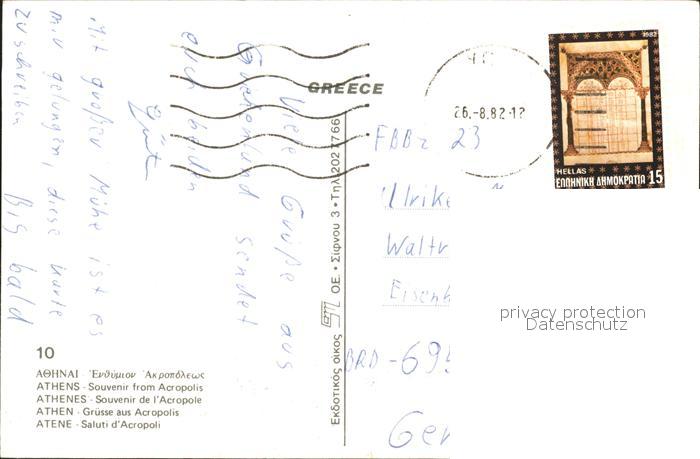 Viele Grüße aus
Griechenland sendet
euch beiden
Mit großer Mühe ist es
mir gelungen, diese Karte
zu schreiben Bis bald
GREECE
26.-8.82-12
1982
HELLAS
ΕΛΛΗΝΙΚΗ ΔΗΜΟΚΡΑΤΙΑ 15
23
Ulrike
Waltr
Eisenh
BRD-695
Ger
privacy protection
Datenschutz
Εκδοτικός οίκος ΟΕ. • Σίφνου 3 • Τηλ. 2027766
10
ΑΘΗΝΑΙ - Ἐνθύμιον Ἀκροπόλεως
ATHENS - Souvenir from Acropolis
ATHENES - Souvenir de l'Acropole
ATHEN - Grüsse aus Acropolis
ATENE - Saluti d'Acropoli